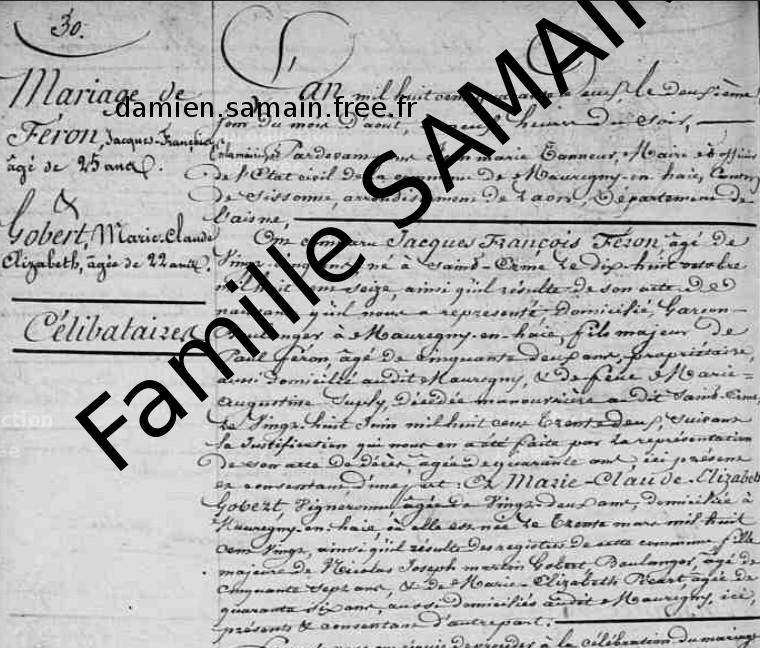 30.
Mariage de
Féron, Jacques-François,
âgé de 25 ans.
&
Gobert, Marie-Claude
Elizabeth, âgée de 22 ans.
Célibataires
L'an mil huit cent quarante deux, le deuxième
jour du mois d'août, heures du soir,
Pardevant Jean marie Tanneur, Maire & officier
de l'Etat civil de la commune de Mauregny-en-haie, Canton
de Sissonne, arrondissement de Laon, Département de
l'aisne,
Est comparu Jacques François Féron, âgé de
Vingt-cinq ans, né à Saint-Erme le dix huit octobre
mil huit cent seize, ainsi qu'il résulte de son acte de
naissance qu'il nous a représenté, Domicilié, Garçon-
Boulanger à Mauregny-en-haie, fils majeur de
Paul Féron, âgé de cinquante deux ans, propriétaire,
aussi domicilié audit Mauregny, & de feue Marie-
augustine décédée manouvrière audit Saint-Erme,
le Vingt huit Juin mil huit cent trente deux, suivant
la Justification qui nous en a été faite par la représentation
de son acte de décès, âgée de quarante ans, ici présent
et consentant d'une part: Et Marie-Claude-Elizabeth
Gobert, Vigneronne, âgée de Vingt-deux ans, domiciliée à
Mauregny-en-haie, où elle est née le trente mars mil huit
cent vingt, ainsi qu'il résulte des registres de cette commune, fille
majeure de Nicolas Joseph martin Gobert, Boulanger, âgé de
cinquante sept ans, & de Marie-Elizabeth âgée de
quarante six ans, aussi domiciliés audit Mauregny, ici,
présents & consentant d'autre part.
à la célébration du mariage
damien.samain.free.fr
Famille SAMAIN